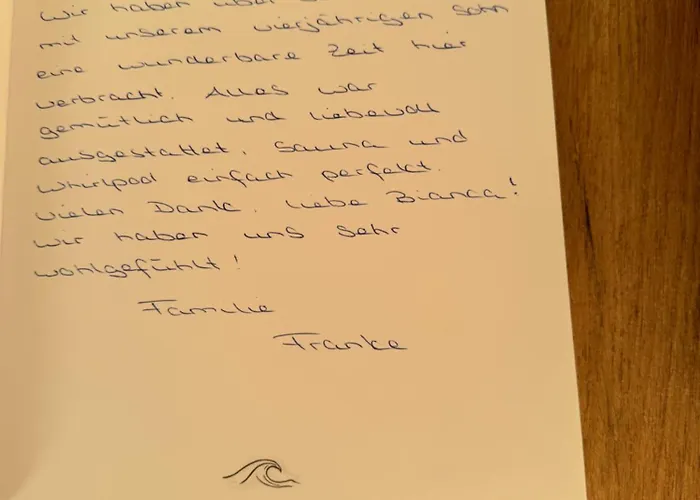 Wir haben über
mit unserem vierjährigen Sohn
eine wunderbare Zeit hier
verbracht. Alles war
gemütlich und liebevoll
ausgestattet. Sauna und
Whirlpool einfach perfekt.
Vielen Dank, liebe Bianca!
Wir haben uns sehr
wohlgefühlt!
Familie
Franke